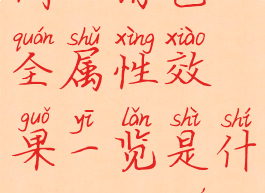 quán shǔ xìng xiào
全属性效
guǒ yī lǎn shì shí
果一览是什